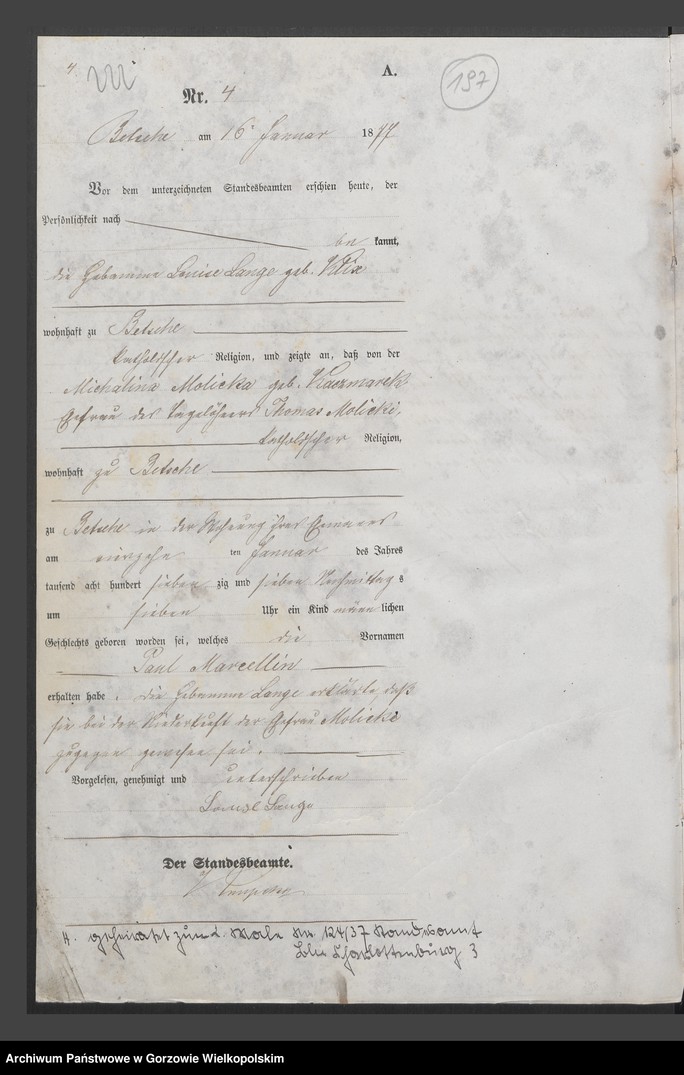 4
A.
197
Nr. 4
Betsche am 16 Januar 1877
Vor dem unterzeichneten Standesbeamten erschien heute, der
Persönlichkeit nach
be kannt,
die Hebamme Louise Lange geb. Klix
wohnhaft zu Betsche
katholischer Religion, und zeigte an, daß von der
Michalina Molicka geb. Kaczmarek
Ehefrau des Tagelöhners Thomas Molicki,
katholischer Religion,
wohnhaft zu Betsche
zu Betsche in der Wohnung ihres Ehemannes
am vierzehn ten Januar des Jahres
tausend acht hundert sieben zig und sieben Nachmittag s
um sieben Uhr ein Kind männ lichen
Geschlechts geboren worden sei, welches die Vornamen
Paul Marcellin
erhalten habe. die Hebamme Lange erklärte, daß
sie bei der Niederkunft der Ehefrau Molicki
zugegen gewesen sei.
Vorgelesen, genehmigt und unterschrieben
Louise Lange
Der Standesbeamte.
H. geheiratet zum 2. Male Nr. 124/37 Standesamt
Bln Charlottenburg 3
Archiwum Państwowe w Gorzowie Wielkopolskim